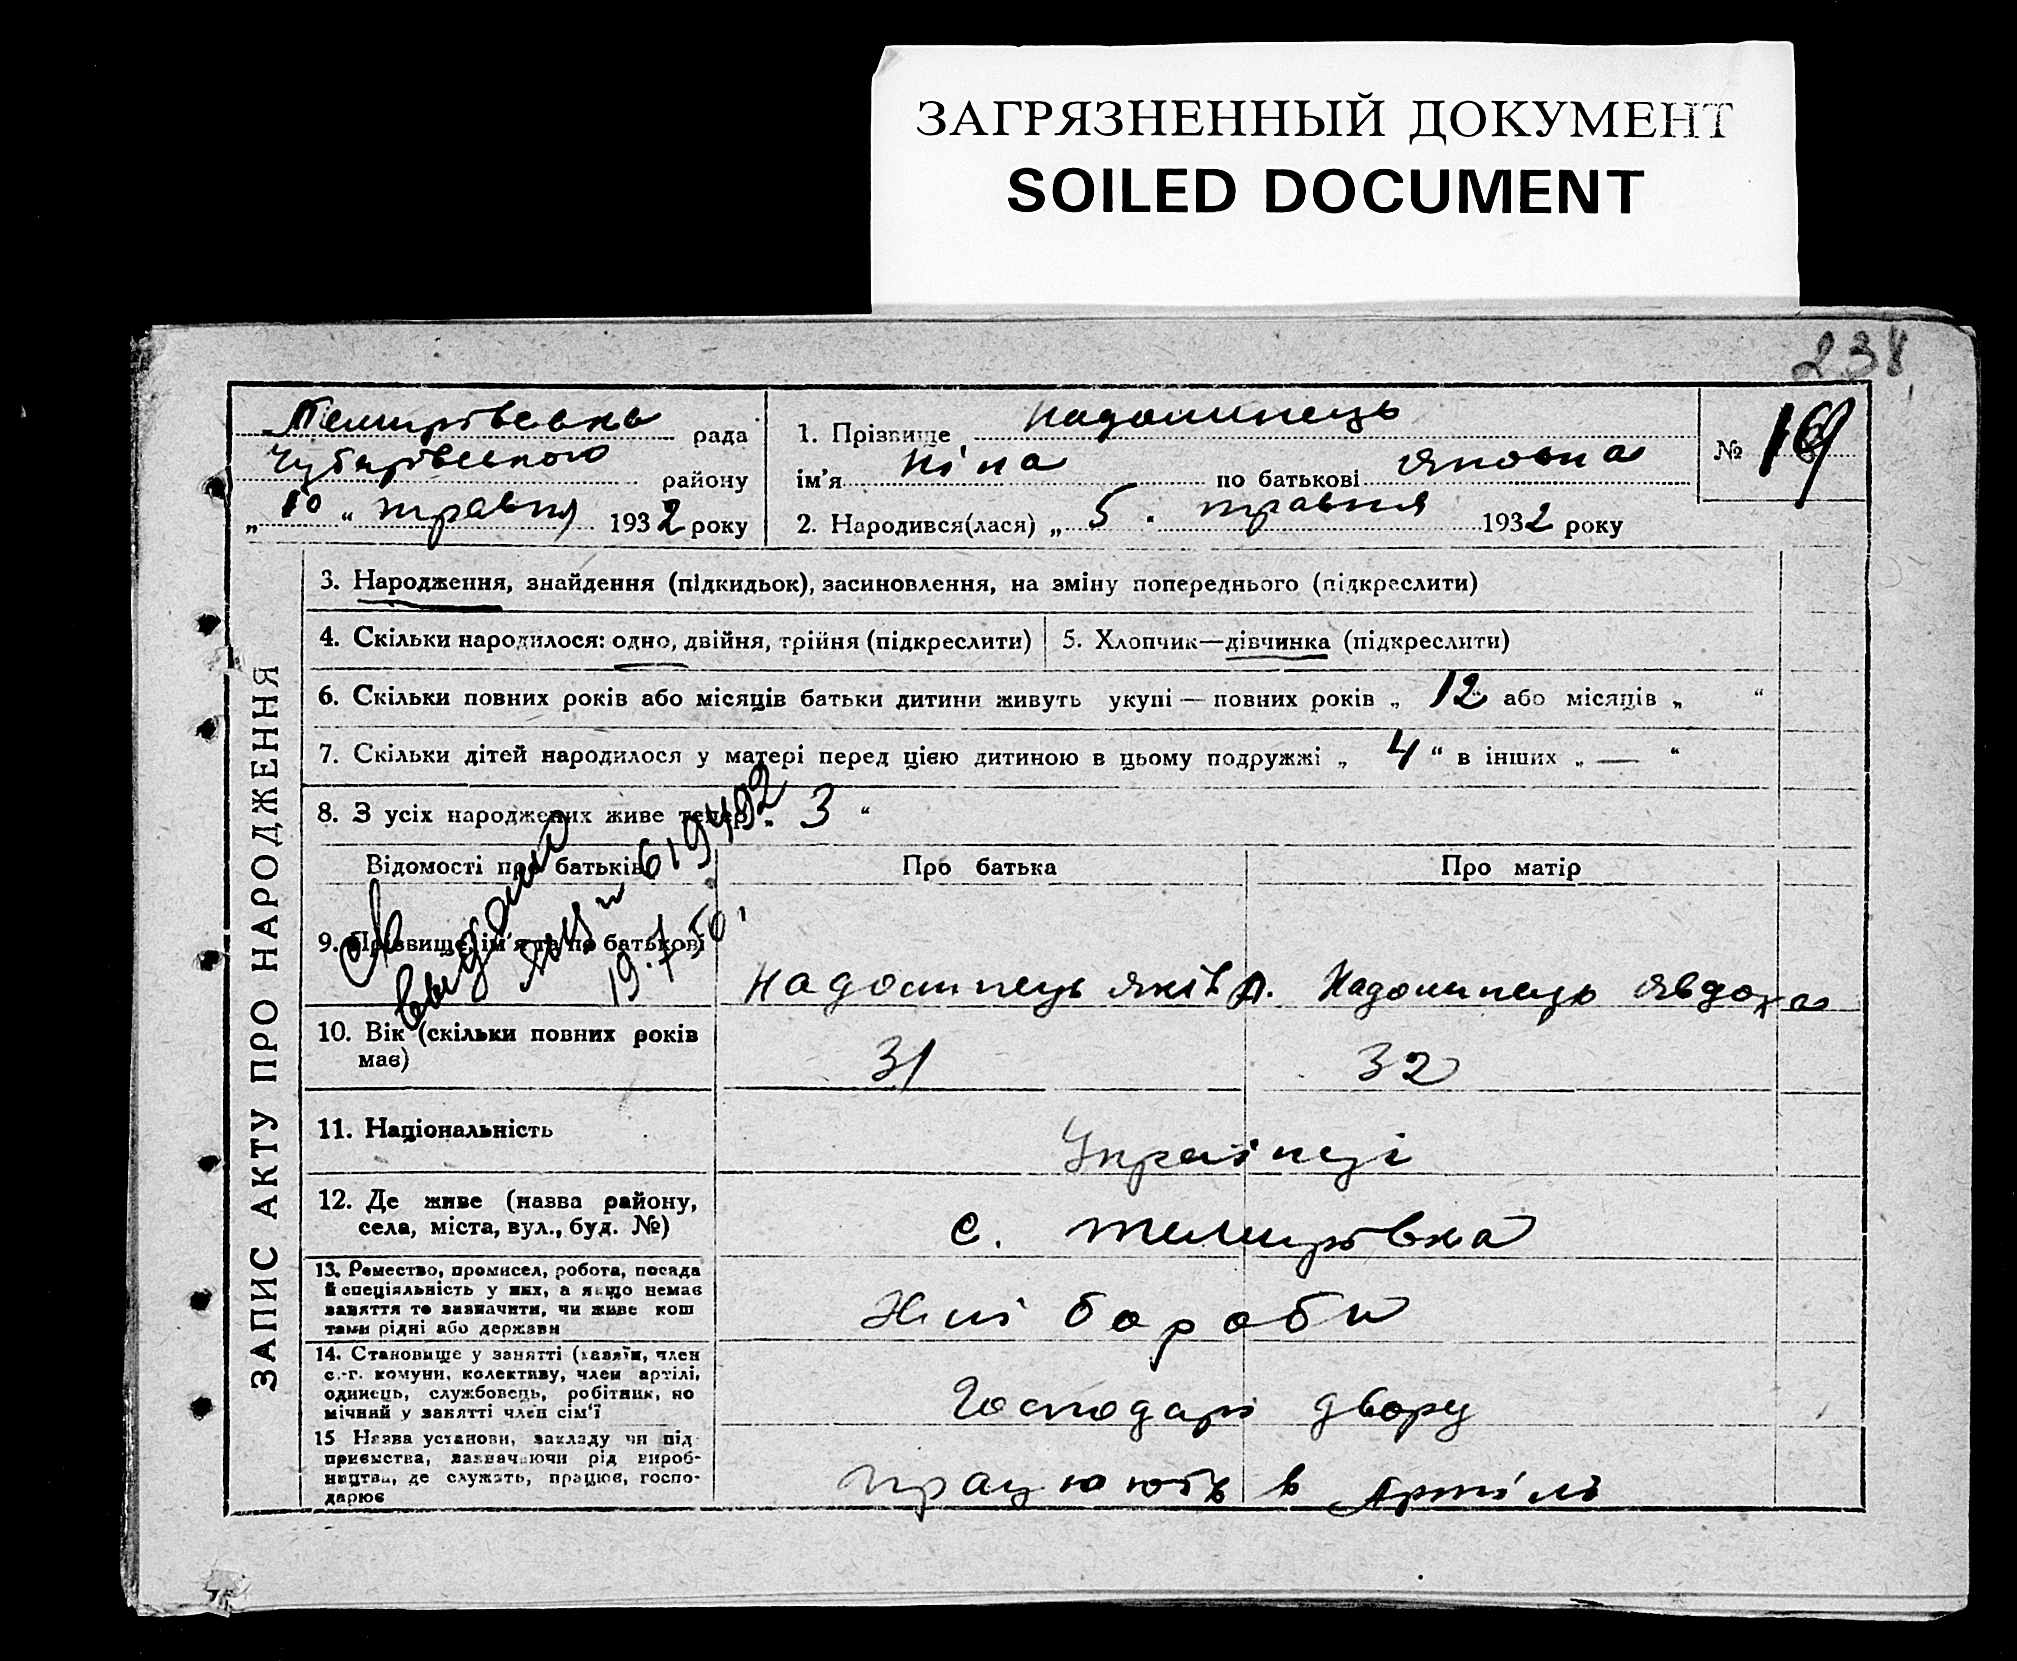 ЗАГРЯЗНЕННЫЙ ДОКУМЕНТ
SOILED DOCUMENT
238
Темирівська рада
Чубарівського району
„10“ травня 1932 року
1. Прізвище Надолинець
ім'я Ніна по батькові Яковна
2. Народився(лася) „5. травня 1932 року
№
ЗАПИС АКТУ ПРО НАРОДЖЕННЯ
3. Народження, знайдення (підкидьок), засиновлення, на зміну попереднього (підкреслити)
4. Скільки народилося: одно, двійня, трійня (підкреслити)
5. Хлопчик—дівчинка (підкреслити)
6. Скільки повних років або місяців батьки дитини живуть укупі — повних років „ 12 або місяців „ “
7. Скільки дітей народилося у матері перед цією дитиною в цьому подружжі „ 4 “ в інших „ — “
8. З усіх народжених живе тепер „ 3 “
Відомості про батьків
Про батька
Про матір
9. Прізвище, ім'я та по батькові
Надолинець Яків А.
Надолинець Явдоха
выдано
619492
19.7.50
10. Вік (скільки повних років має)
31
32
11. Національність
Українці
12. Де живе (назва району,
села, міста, вул., буд. №)
с. Темирівка
13. Ремество, промисел, робота, посада
й спеціяльність у них, а якщо немає
заняття то зазначити, чи живе кош
тами рідні або держави
Хлібороби
14. Становище у занятті (хазяїн, член
с.-г. комуни, колективу, член артілі,
одинець, службовець, робітник, по
мічний у занятті член сім'ї
Господарі двору
15 Назва установи, закладу чи під-
приємства, зазначаючи рід вироб-
ництва, де служать, працює, госпо-
дарює
працюють в Артіль